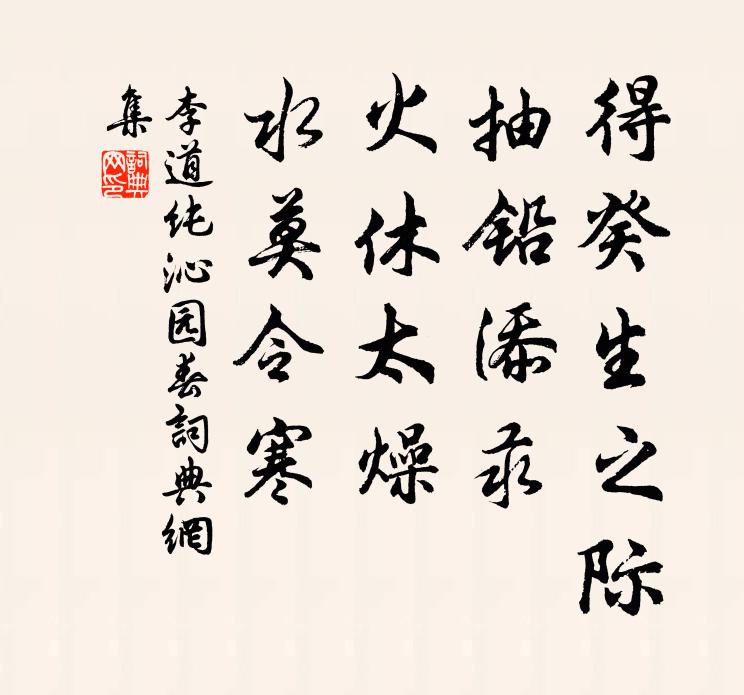 得癸生之际
抽铅添汞
火休太燥
水莫令寒
李道纯沁园春詞典網
集
詞典
网印